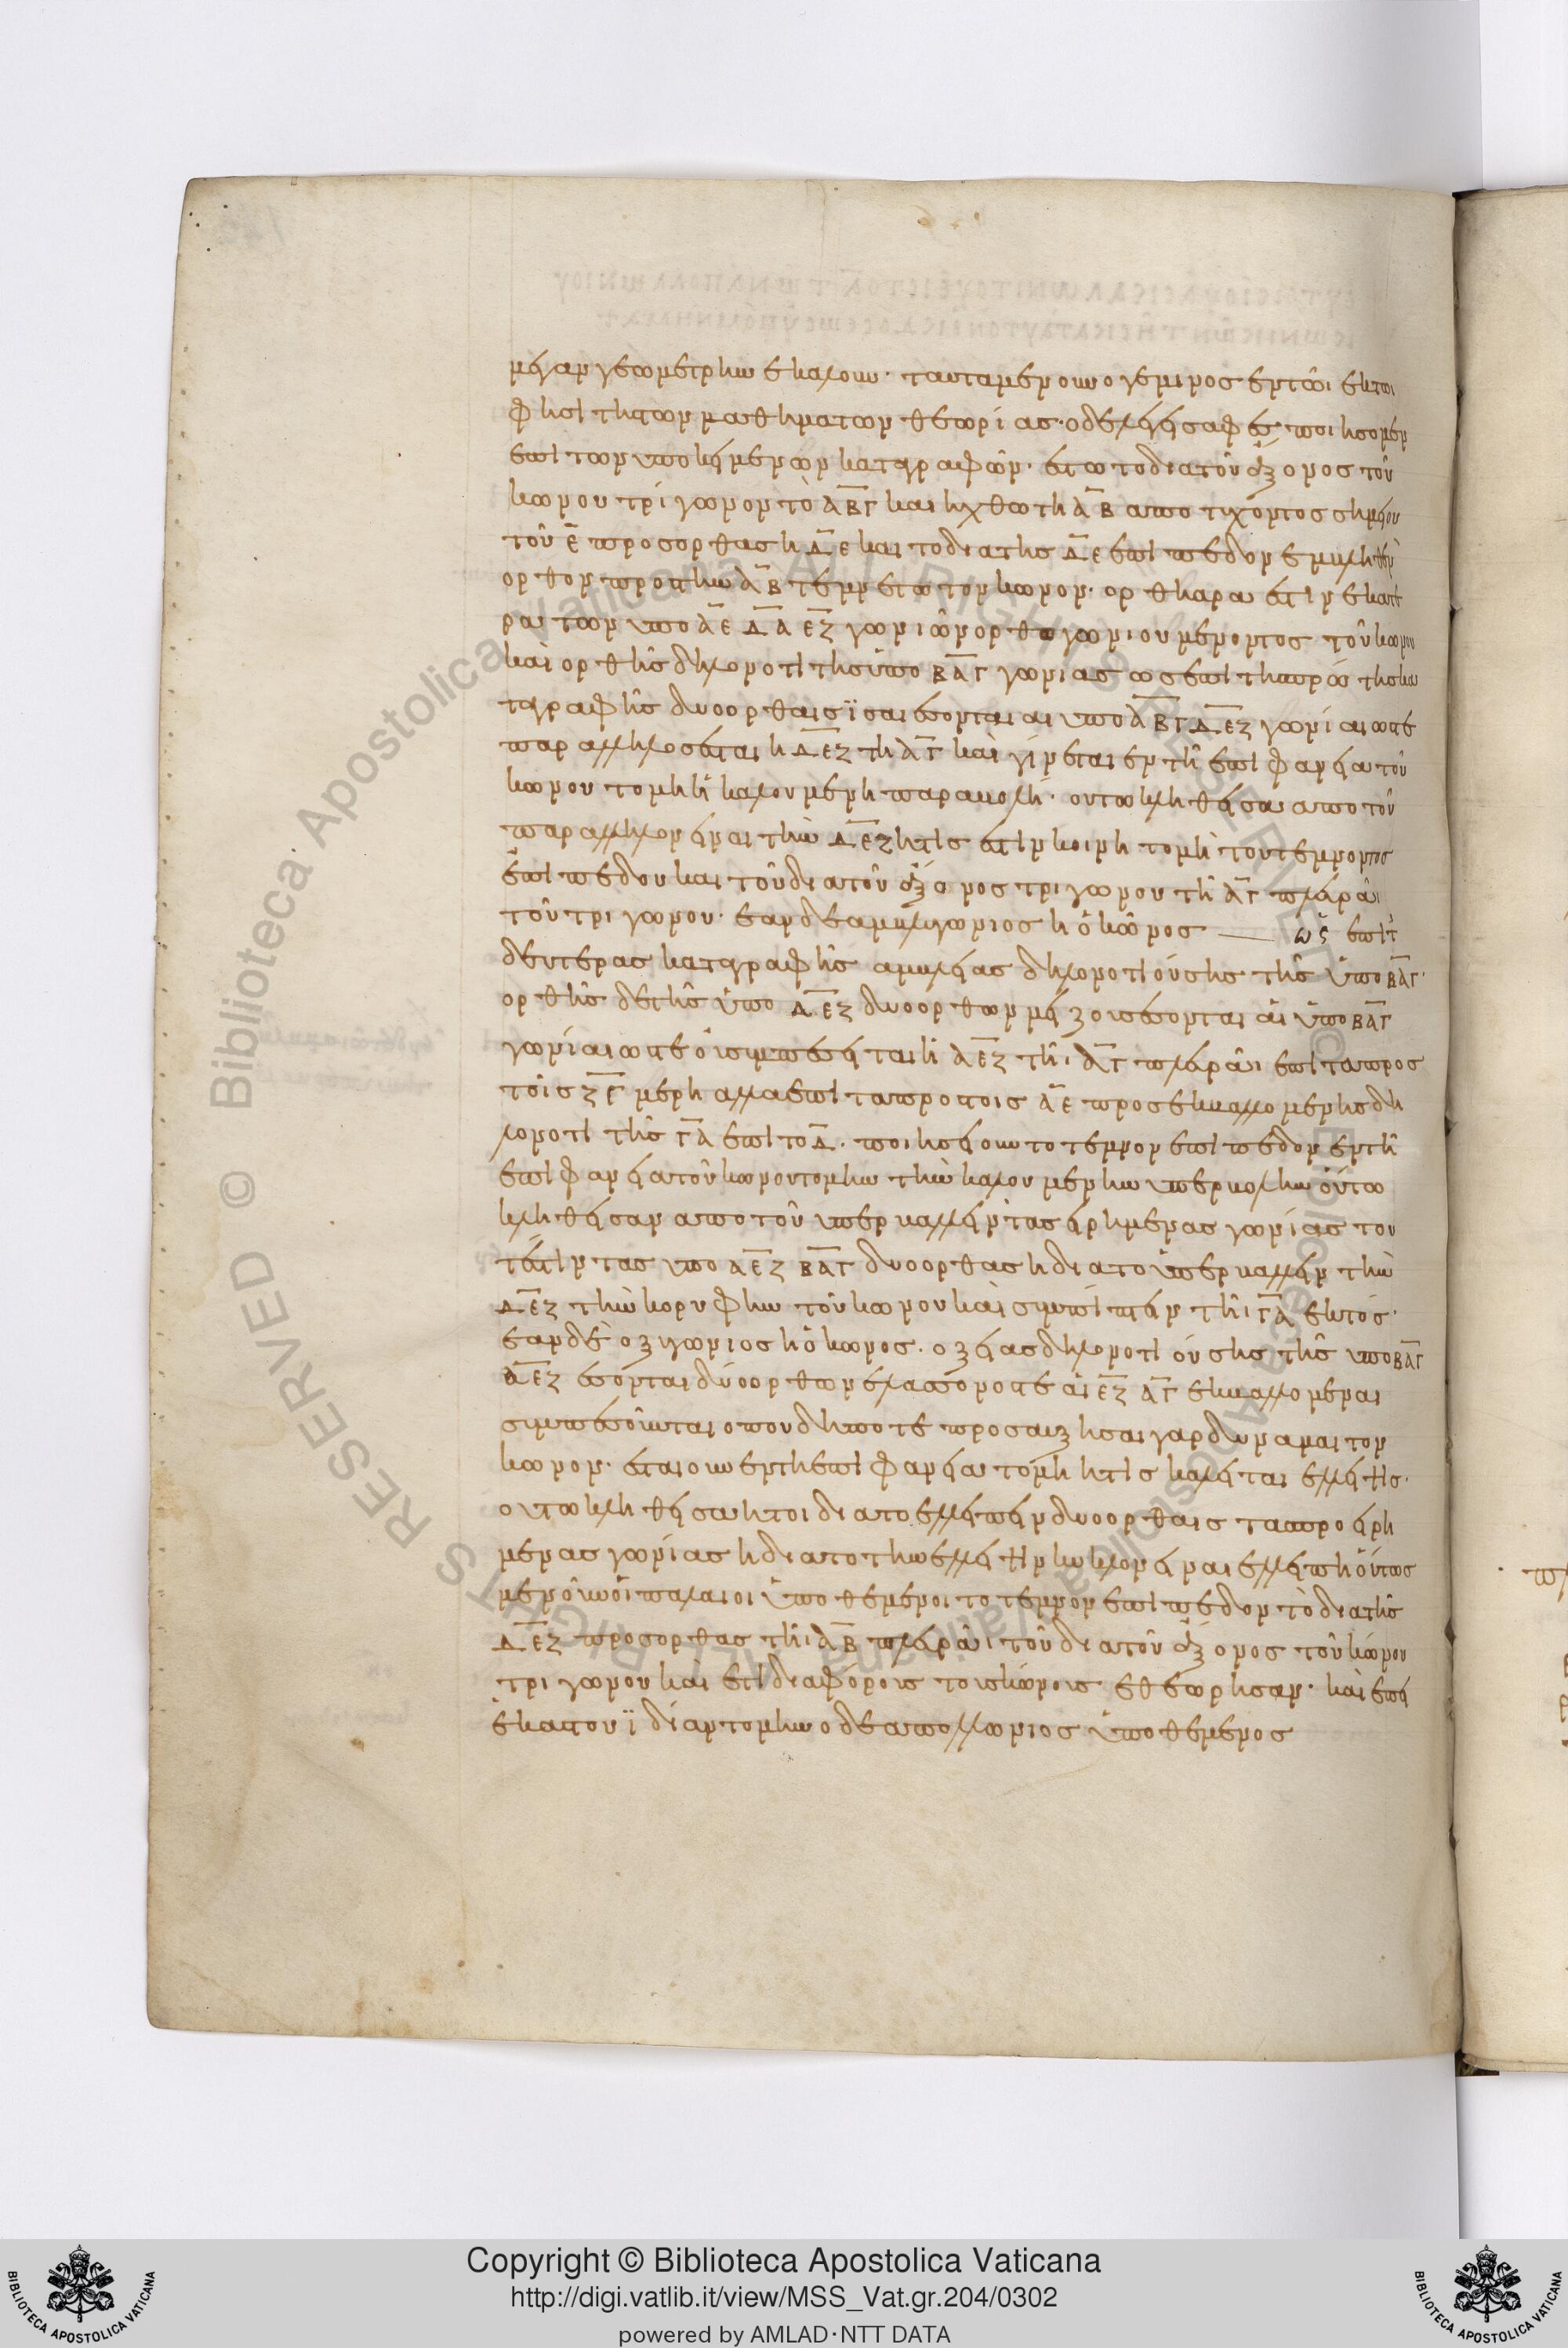 μέγαν γεωμέτρην ἐκάλουν. ταῦτα μὲν οὖν ὁ γεμῖνος ἐν τῶι ἕκτωι
φησὶ τῆς τῶν μαθημάτων θεωρίας. ὃ δὲ λέγει σαφὲς ποιήσομεν
ἐπὶ τῶν ὑποκειμένων καταγραφῶν. ἔστω τὸ διὰ τοῦ ἄξονος τοῦ
κώνου τρίγωνον τὸ ΑΒΓ καὶ ἤχθω τῆ ΑΒ ἀπὸ τυχόντος σημείου
τοῦ Ε πρὸς ὀρθὰς ἡ ΔΕ καὶ τὸ διὰ τῆς ΔΕ ἐπίπεδον ἐκβληθὲν
ὀρθὸν πρὸς τὴν ΑΒ τεμνέτω τὸν κῶνον. ὀρθὴ ἄρα ἐστὶν ἑκατέ
ρα τῶν ὑπὸ ΑΕΔ ΑΕΖ γωνιῶν ὀρθογωνίου μὲν ὄντος τοῦ κώνου
καὶ ὀρθῆς δηλονότι τῆς ὑπὸ ΒΑΓ γωνίας ὡς ἐπὶ τῆς πρώ τῆς κα
ταγραφῆς δύο ὀρθαῖς ἴσαι ἔσονται αἱ ὑπὸ ΑΒΓ ΔΕΖ γωνίαι ὥστε
παράλληλος ἔσται ἡ ΔΕΖ τῆ ΑΓ καὶ γίνεται ἐν τῆ ἐπιφανεία τοῦ
κώνου τομὴ ἡ καλουμένη παραβολή. οὕτω κληθεῖσα ἀπὸ τοῦ
παράλληλον εἶναι τὴν ΔΕΖ ἥτις ἐστὶν κοινὴ τομὴ τοῦ τέμνοντος
ἐπιπέδου καὶ τοῦ διὰ τοῦ ἄξονος τριγώνου τῆ ΑΓ πλευρᾶι
τοῦ τριγώνου. ἐὰν δὲ ἀμβλυγώνιος ἦ ὁ κῶνος — ὡς ἐπὶ τ
δευτέρας καταγραφῆς ἀμβλείας δηλονότι οὔσης τῆς ὑπὸ ΒΑΓ.
ὀρθῆς δὲ τῆς ὑπὸ ΔΕΖ δύο ὀρθῶν μείζους ἔσονται αἱ ὑπὸ ΒΑΓ
γωνίαι ὥστε οὐ συμπεσεῖται ἡ ΔΕΖ τῆι ΑΓ πλευρᾶι ἐπὶ τὰ πρὸς
τοῖς ΖΓ μέρη ἀλλὰ ἐπὶ τὰ πρὸς τοῖς ΑΕ προσεκβαλλομένης δη
λονότι τῆς ΓΑ ἐπὶ τὸ Δ. ποιήσει οὖν τὸ τέμνον ἐπίπεδον ἐν τῆ
ἐπιφανεία τοῦ κώνου τομὴν τὴν καλουμένην ὑπερβολὴν οὕτω
κληθεῖσαν ἀπὸ τοῦ ὑπερβάλλειν τὰς εἰρημένας γωνίας του
τέστιν τὰς ὑπὸ ΑΕΖ ΒΑΓ δύο ὀρθὰς ἢ διὰ τὸ ὑπερβάλλειν τὴν
ΔΕΖ τὴν κορυφὴν τοῦ κώνου καὶ συμπίπτειν τῆι ΓΑ ἐκτός.
ἐὰν δὲ ὀξυγώνιος ἦ ὁ κῶνος. ὀξείας δηλονότι οὔσης τῆς ὑπὸ ΒΑΓ
ΔΕΖ ἔσονται δύο ὀρθῶν ἐλάσσονες ὥστε αἱ ΕΖ ΑΓ ἐκβαλλόμεναι
συμπεσοῦνται ὁπουδήποτε προσαυξῆσαι γὰρ δύναμαι τὸν
κῶνον. ἔσται οὖν ἐν τῆ ἐπιφανεία τομὴ ἥτις καλεῖται ἔλλειψις.
οὕτω κληθεῖσα ἤτοι διὰ τὸ ἐλλείπειν δύο ὀρθαῖς τὰς προειρη
μένας γωνίας ἢ διὰ τὸ τὴν ἔλλειψιν κύκλον εἶναι ἐλλειπῆ οὕτως
μὲν οὖν οἱ παλαιοὶ ὑποθέμενοι τὸ τέμνον ἐπίπεδον τὸ διὰ τῆς
ΔΕΖ πρὸς ὀρθὰς τῆι ΑΒ πλευρᾶι τοῦ διὰ τοῦ ἄξονος τοῦ κώνου
τριγώνου καὶ ἔτι διαφόροις τοῖς κώνοις ἐθεώρησαν. καὶ ἐπὶ
ἑκάστου ἰδίαν τομὴν ὁ δὲ ἀπολλώνιος ὑποθέμενος
Copyright © Biblioteca Apostolica Vaticana
http://digi.vatlib.it/view/MSS_Vat.gr.204/0302
powered by AMLAD·NTT DATA
BIBLIOTECA APOSTOLICA VATICANA
BIBLIOTECA APOSTOLICA VATICANA